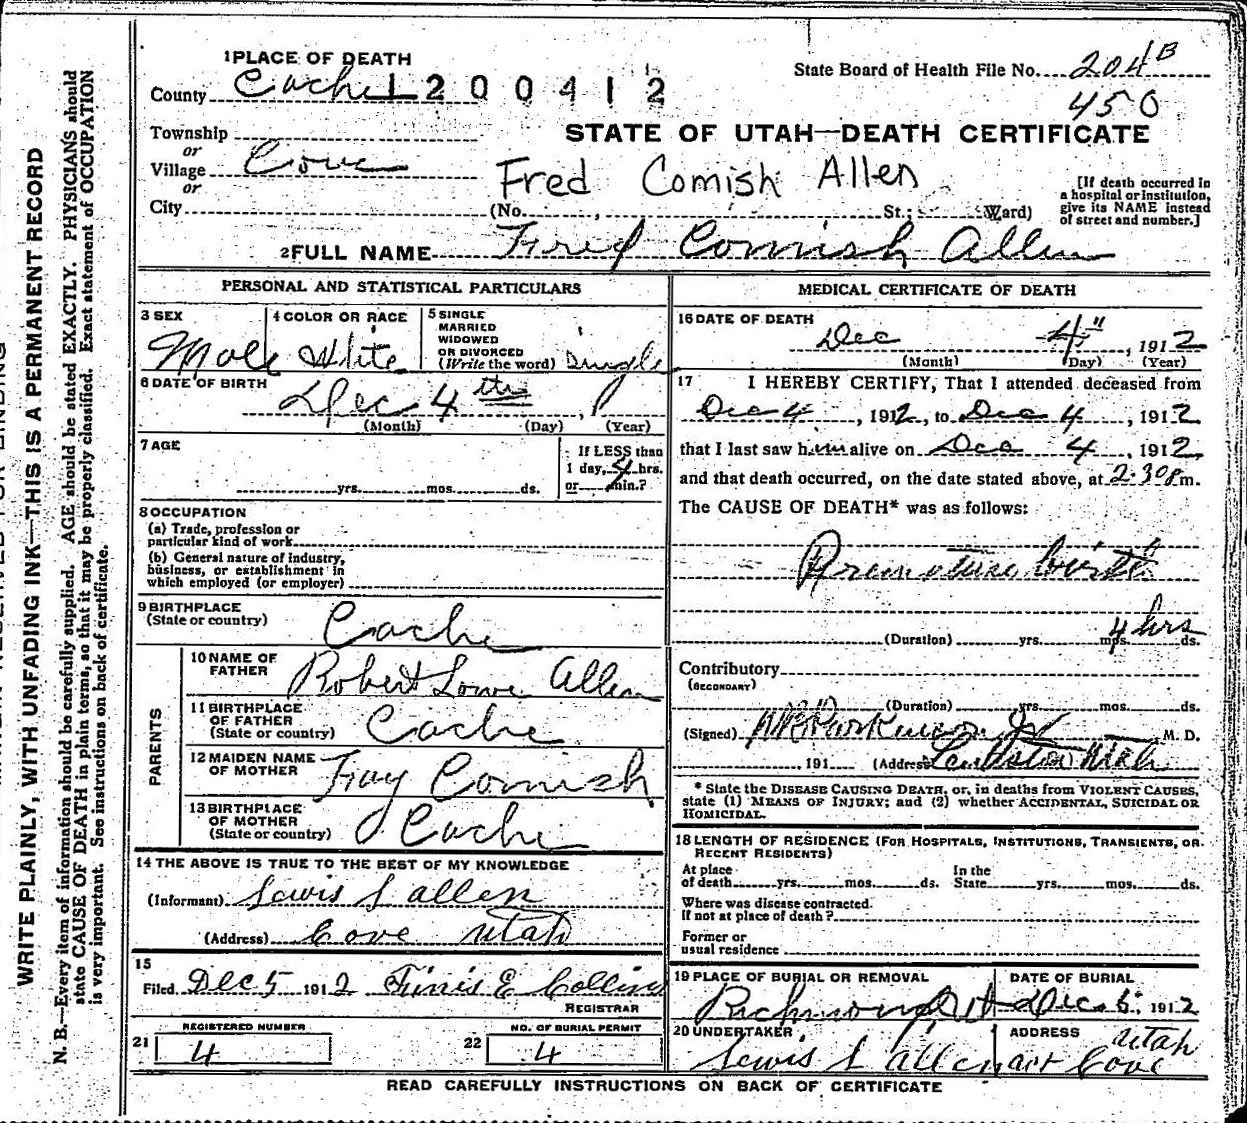 1 PLACE OF DEATH
County Cache 1200412
State Board of Health File No. 204 B
450
Township
or
Village Cove
or
City
STATE OF UTAH—DEATH CERTIFICATE
Fred Comish Allen
(No. , St.; Ward)
[If death occurred in
a hospital or institution,
give its NAME instead
of street and number.]
2 FULL NAME Fred Comish Allen
PERSONAL AND STATISTICAL PARTICULARS
3 SEX
Male
4 COLOR OR RACE
White
5 SINGLE
MARRIED
WIDOWED
OR DIVORCED
(Write the word) Single
6 DATE OF BIRTH
Dec 4th , 1
(Month) (Day) (Year)
7 AGE
yrs. mos. ds.
If LESS than
1 day, 4 hrs.
or min.?
8 OCCUPATION
(a) Trade, profession or
particular kind of work
(b) General nature of industry,
business, or establishment in
which employed (or employer)
9 BIRTHPLACE
(State or country) Cache
PARENTS
10 NAME OF
FATHER Robert Lowe Allen
11 BIRTHPLACE
OF FATHER
(State or country) Cache
12 MAIDEN NAME
OF MOTHER Fay Comish
13 BIRTHPLACE
OF MOTHER
(State or country) Cache
14 THE ABOVE IS TRUE TO THE BEST OF MY KNOWLEDGE
(Informant) Lewis S Allen
(Address) Cove Utah
15
Filed Dec 5 1912 Finis E Collins
REGISTRAR
REGISTERED NUMBER
21 4
NO. OF BURIAL PERMIT
22 4
MEDICAL CERTIFICATE OF DEATH
16 DATE OF DEATH
Dec 4" , 1912
(Month) (Day) (Year)
17 I HEREBY CERTIFY, That I attended deceased from
Dec 4 , 1912, to Dec 4 , 1912
that I last saw him alive on Dec 4 , 1912,
and that death occurred, on the date stated above, at 2:30 p m.
The CAUSE OF DEATH* was as follows:
Premature birth
4 hrs
(Duration) yrs. mos. ds.
Contributory
(SECONDARY)
(Duration) yrs. mos. ds.
(Signed) Parkinson Jr M. D.
191 (Address) Lewiston Utah
* State the DISEASE CAUSING DEATH, or, in deaths from VIOLENT CAUSES,
state (1) MEANS OF INJURY; and (2) whether ACCIDENTAL, SUICIDAL OR
HOMICIDAL.
18 LENGTH OF RESIDENCE (FOR HOSPITALS, INSTITUTIONS, TRANSIENTS, OR
RECENT RESIDENTS)
At place
of death yrs. mos. ds.
In the
State yrs. mos. ds.
Where was disease contracted
If not at place of death?
Former or
usual residence
19 PLACE OF BURIAL OR REMOVAL
Richmond Ut
DATE OF BURIAL
Dec. 6, 1912
20 UNDERTAKER
Lewis S Allen
ADDRESS Utah
Cove
READ CAREFULLY INSTRUCTIONS ON BACK OF CERTIFICATE
WRITE PLAINLY, WITH UNFADING INK—THIS IS A PERMANENT RECORD
N. B.—Every item of information should be carefully supplied. AGE should be stated EXACTLY. PHYSICIANS should
state CAUSE OF DEATH in plain terms, so that it may be properly classified. Exact statement of OCCUPATION
is very important. See instructions on back of certificate.